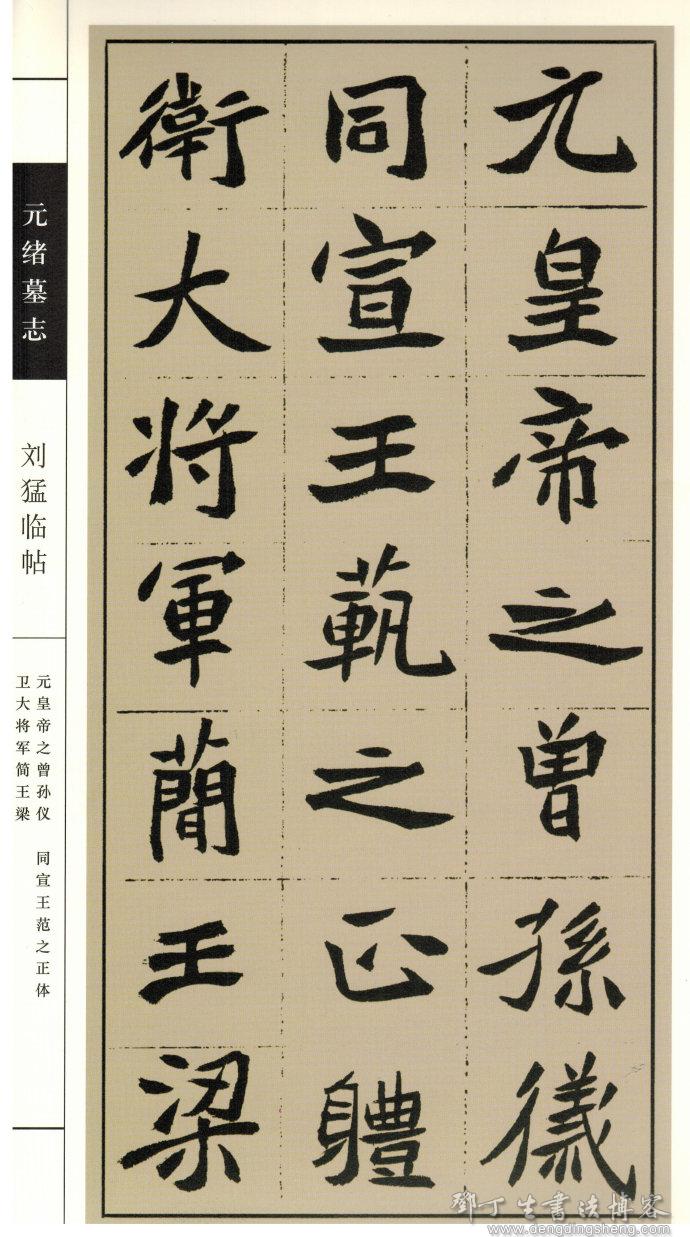 元皇帝之曾孫儀
同宣王範之正體
衛大將軍簡王梁
元绪墓志
刘猛临帖
元皇帝之曾孙仪 同宣王范之正体
卫大将军简王梁
鄧丁生書法博客
www.dengdingsheng.com